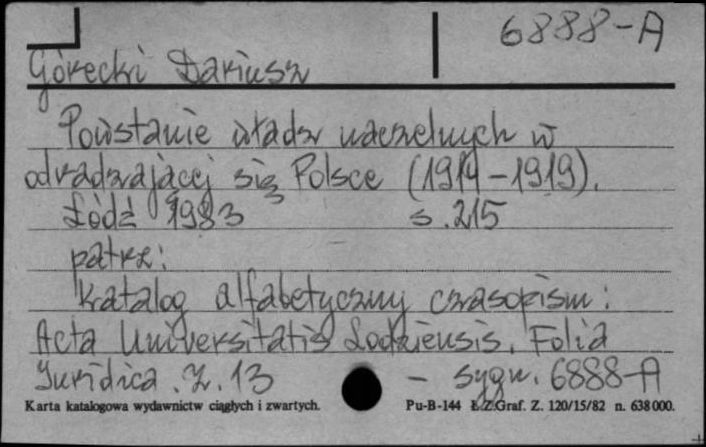 6888-A
Górecki Dariusz
Powstanie władz naczelnych w
odradzającej się Polsce (1914-1919).
Łódź 1983 s. 215
patrz:
Katalog alfabetyczny czasopism:
Acta Universitatis Lodziensis. Folia
Juridica. Z. 13 - sygn. 6888-A
Karta katalogowa wydawnictw ciągłych i zwartych. Pu-B-144 Ł.Z.Graf. Z. 120/15/82 n. 638000.